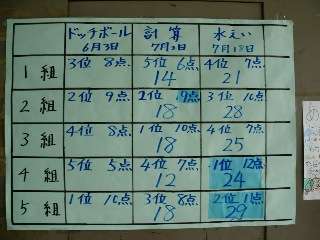 ドッチボール 計算 水えい
6月3日 7月2日 7月18日
1組 3位 8点 5位 6点 4位 7点
14 21
2組 2位 9点 2位 9点 3位 10点
18 28
3組 4位 8点 1位 10点 4位 7点
18 25
4組 5位 5点 4位 7点 1位 12点
12 24
5組 1位 10点 3位 8点 2位 11点
18 29
め